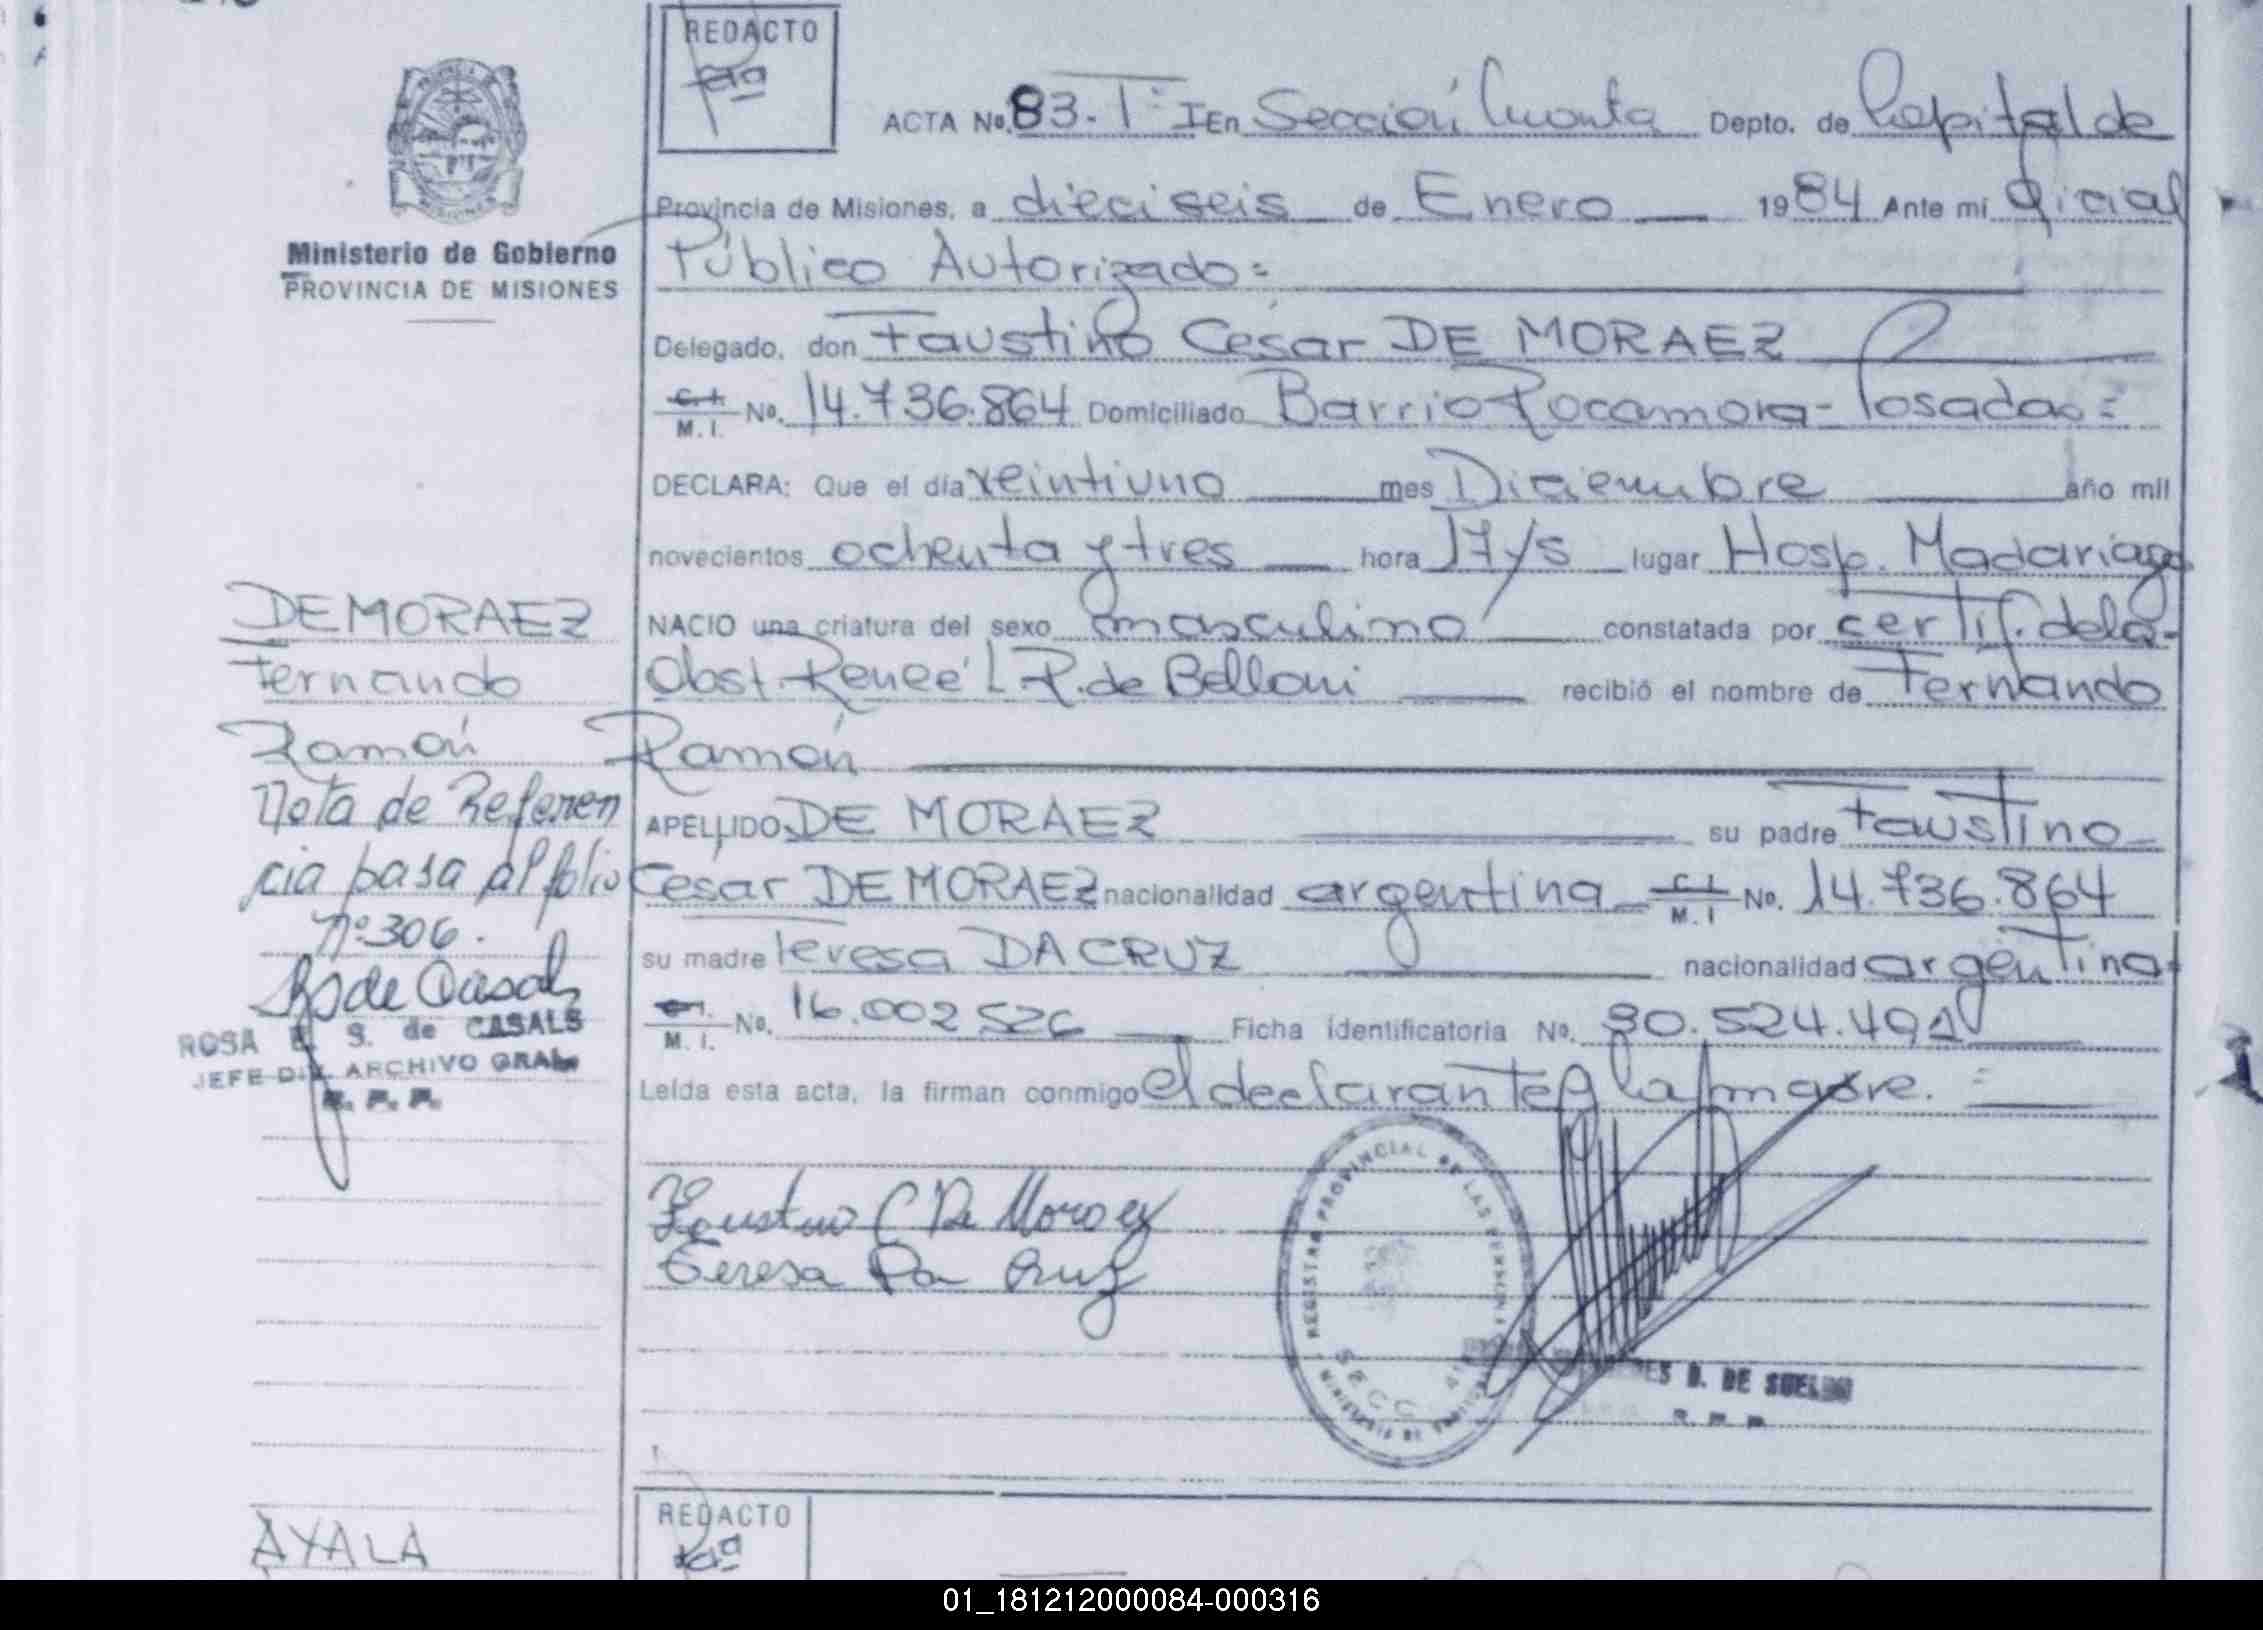 REDACTO
ACTA No. 83. T° I En Sección Cuarta Depto. de Capital de
Provincia de Misiones, a dieciseis de Enero 1984 Ante mi Oficial
Ministerio de Gobierno
PROVINCIA DE MISIONES
Público Autorizado=
Delegado, don Faustino César DE MORAEZ
C.I. M.I. No. 14.736.864 Domiciliado Barrio Rocamora - Posadas=
DECLARA: Que el día veintiuno mes Diciembre año mil
novecientos ochenta y tres hora 17 y 5 lugar Hosp. Madariaga
DE MORAEZ
NACIO una criatura del sexo masculino constatada por certif. de la
Fernando
Obst. Reneé L R. de Belloni recibió el nombre de Fernando
Ramón
Ramón
Nota de Referen
APELLIDO DE MORAEZ su padre Faustino
cia pasa al folio
Cesar DE MORAEZ nacionalidad argentina C.I. M.I No. 14.736.864
N° 306.
su madre Teresa DA CRUZ nacionalidad argentina
M.I. No. 16.002 526 Ficha identificatoria No. 30.524.491
de Casals
ROSA E. S. de CASALS
JEFE DIV. ARCHIVO GRAL.
R. P. P.
Leída esta acta, la firman conmigo el declarante y la madre. =
Faustino C De Moraez
Teresa Da Cruz
REGISTRO PROVINCIAL DE LAS PERSONAS
SECC 4ta
MINISTERIO DE
D. DE SUELDO
R. P. P.
REDACTO
AYALA
01_181212000084-000316